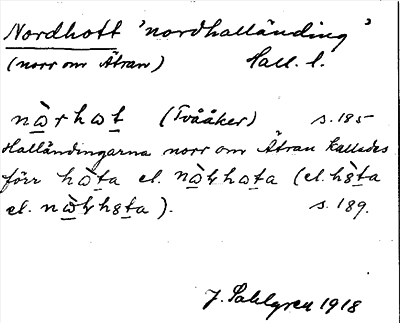 Nordhott 'nordhalländing'
(norr om Ätran) Hall. l.
nɷ̀rhɷt (Tvååker) s. 185
Halländingarna norr om Ätran kallades
förr hɷ̀ta el. nɷ̀rhɷta (el. hɞ̀ta
el. nɷ̀rhɞta). s. 189.
J. Sahlgren 1918